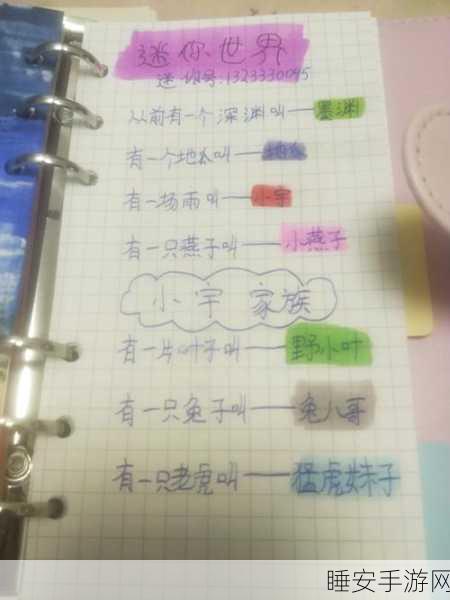 迷你世界
迷你号:1323330045
从前有一个深渊叫——墨渊
有一个地瓜叫——地瓜
有一场雨叫——小宇
有一只燕子叫——小燕子
小宇 家族
有一片叶子叫——野小叶
有一只兔子叫——兔八哥
有一只老虎叫——猛虎妹子
睡安手游网